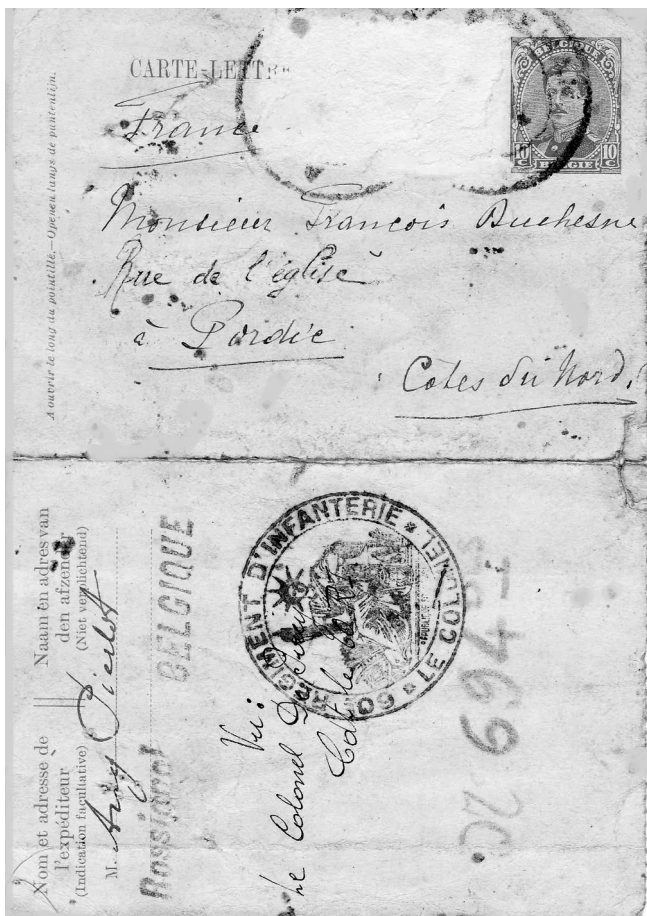 CARTE-LETTRE
BELGIQUE
10 C 10 C
BELGIË
A ouvrir le long du pointillé.—Openen langs de puntenlijn.
France
Monsieur François Duchesne
Rue de l'église
à Pordic
Cotes du Nord.
Nom et adresse de
l'expéditeur
(Indication facultative)
Naam en adres van
den afzender
(Niet verplichtend)
M.
Rossignol BELGIQUE
Vu:
Le Colonel
60E REGIMENT D'INFANTERIE * LE COLONEL *
694